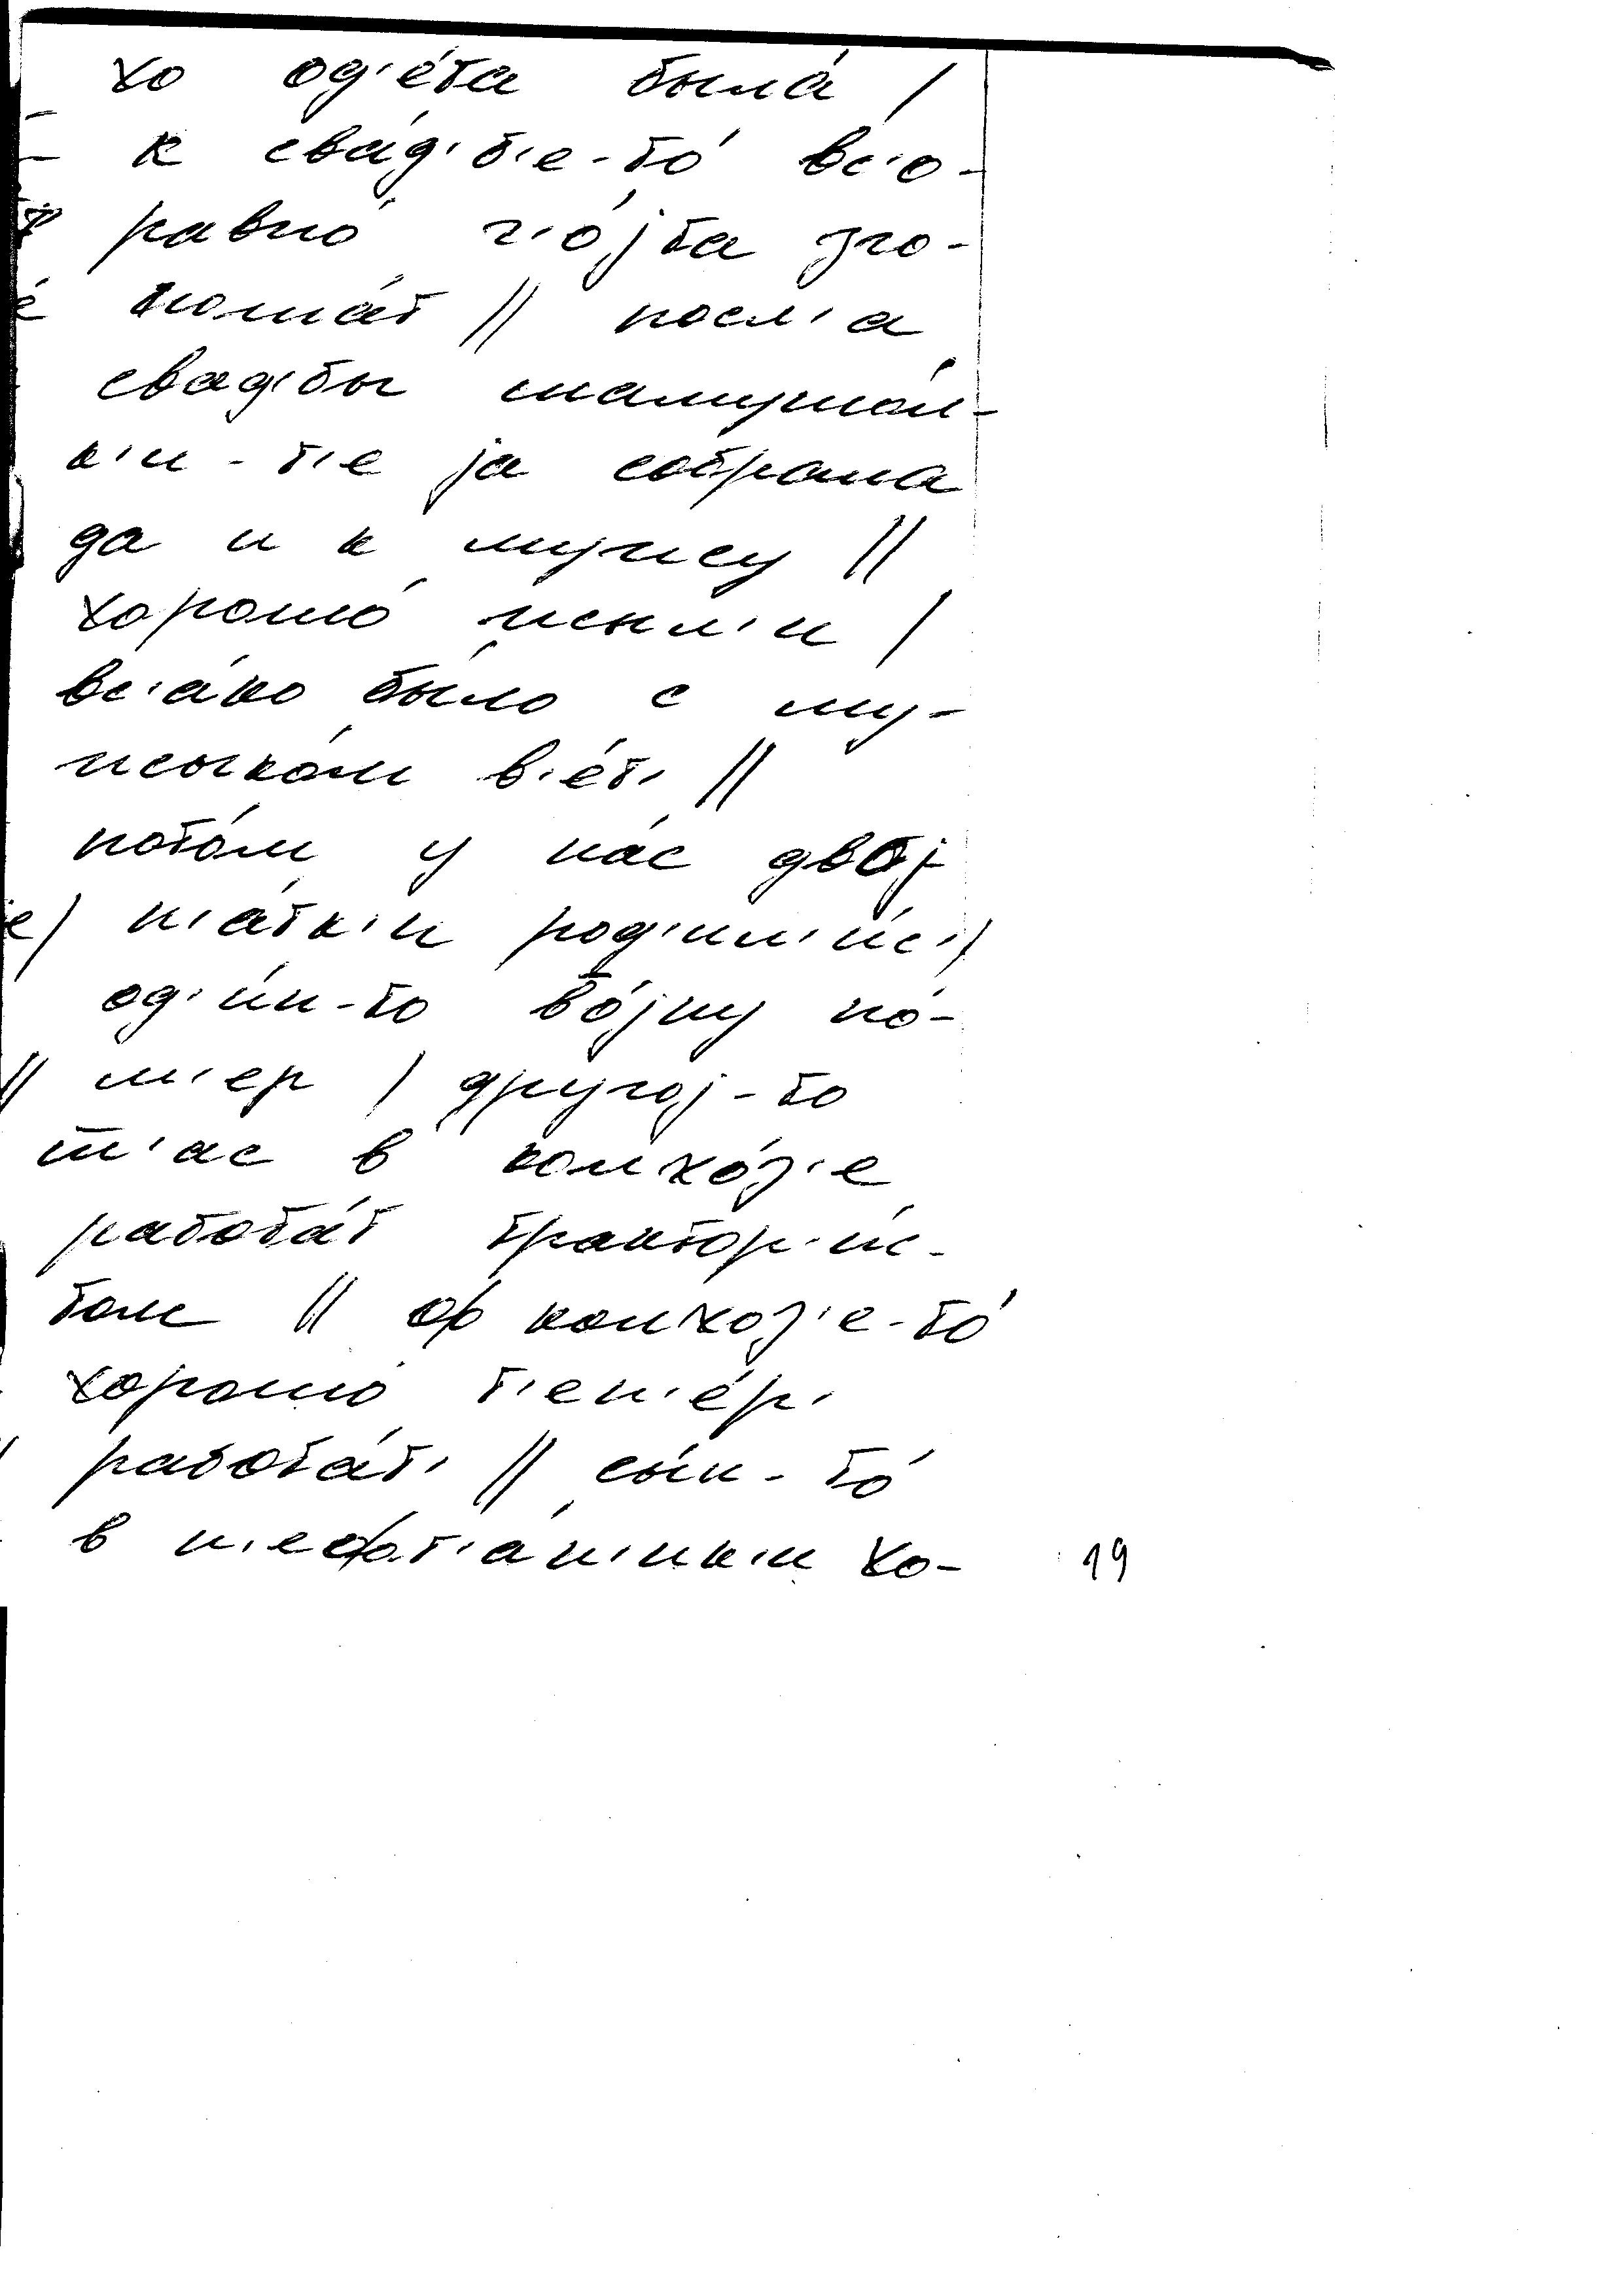 хо од'éта былá /
к свáд'б'е-тó вс'о-
равнó г'óјта зго-
ношáт // посл'а
свад'бы шамушóл-
к'и-т'е ја собрала
да и к мужу //
хорошó жыл'и /
вс'áко бы́ло с му-
жыкóм в'éт' //
потóм у нáс двој
н'áтк'и род'ил'и́с' /
од'и́н-то вóјну пó-
м'ер / другој-то
ш'ас в колхóз'е
работáт трактор'и́с-
том // об колхоз'е-тó
хорошó т'еп'éр'
работáт' // сы́н-тó
в н'ефт'áн'ик'и хо-
19